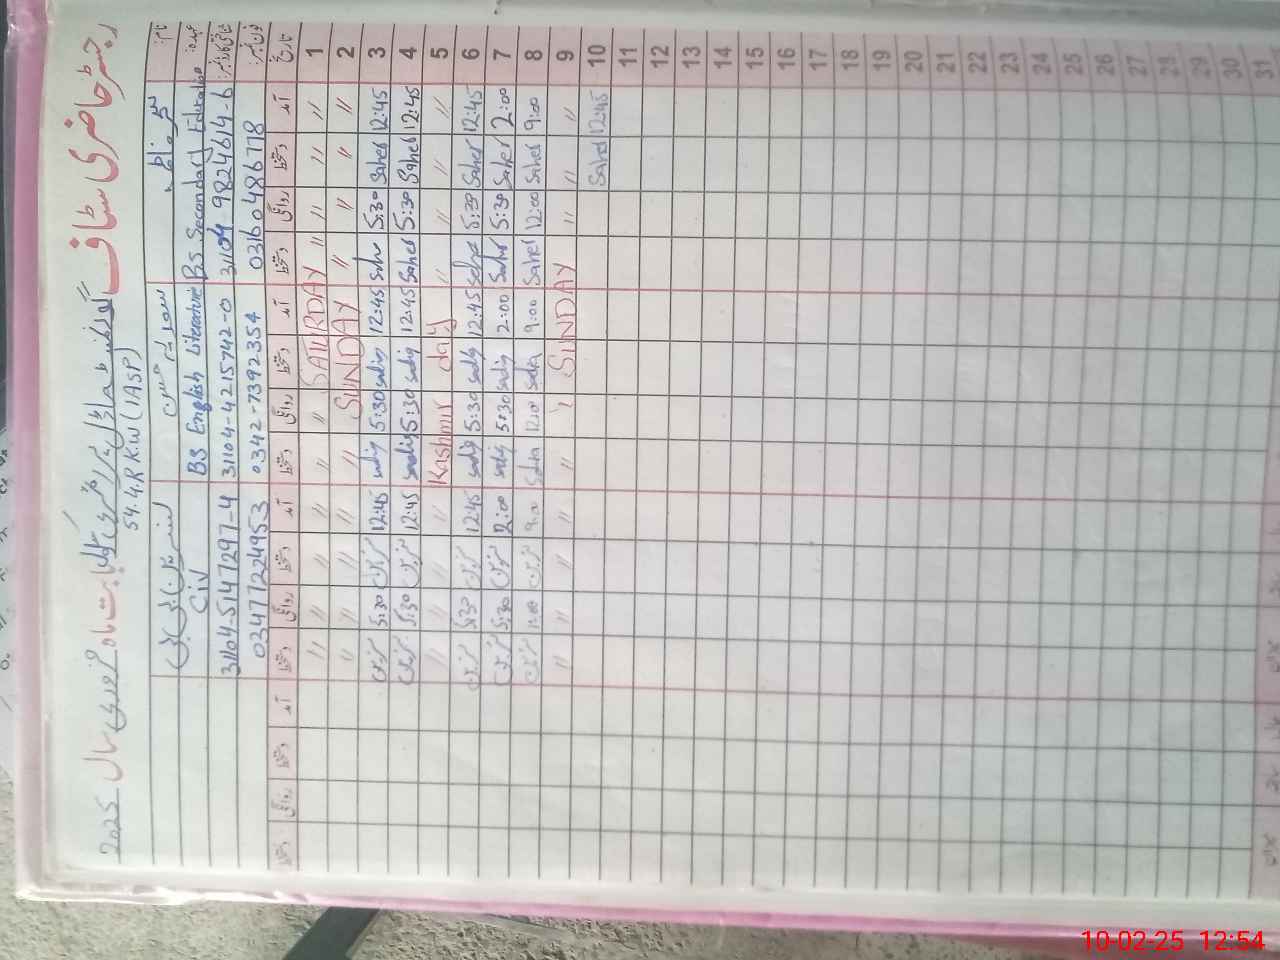 رجسٹر حاضری سٹاف گورنمنٹ ماڈل پرائمری بابت ماہ فروری سال 2025
54.4.R K.W (IASP)
نام: سحر فاطمہ
عہدہ: BS Secondary Education BS English Literature Civ
شناختی کارڈ نمبر: 31104-9824614-6 31104-4215742-0 31104-5147297-4
فون نمبر: 03160486778 0342-7392354 03477224953
تاریخ آمد دستخط روانگی دستخط آمد دستخط روانگی دستخط آمد دستخط روانگی دستخط آمد دستخط روانگی دستخط
1 〃 〃 〃 〃 SATURDAY 〃 〃 〃 〃 〃 〃
2 〃 〃 〃 〃 SUNDAY 〃 〃 〃 〃 〃
3 12:45 Saher 5:30 Saher 12:45 sadiq 5:30 sadiq 12:45 5:30
4 12:45 Saher 5:30 Saher 12:45 sadiq 5:30 sadiq 12:45 5:30
5 〃 〃 〃 〃 Kashmir day 〃 〃 〃 〃
6 12:45 Saher 5:30 Saher 12:45 sadiq 5:30 sadiq 12:45 5:30
7 2:00 Saher 5:30 Saher 2:00 sadiq 5:30 sadiq 2:00 5:30
8 9:00 Saher 12:00 Saher 9:00 Sadia 12:00 Sadia 9:00 12:00
9 〃 〃 〃 SUNDAY 〃 〃 〃 〃 〃 〃
10 12:45 Saher
11
12
13
14
15
16
17
18
19
20
21
22
23
24
25
26
27
28
29
30
31
10-02-25 12:54